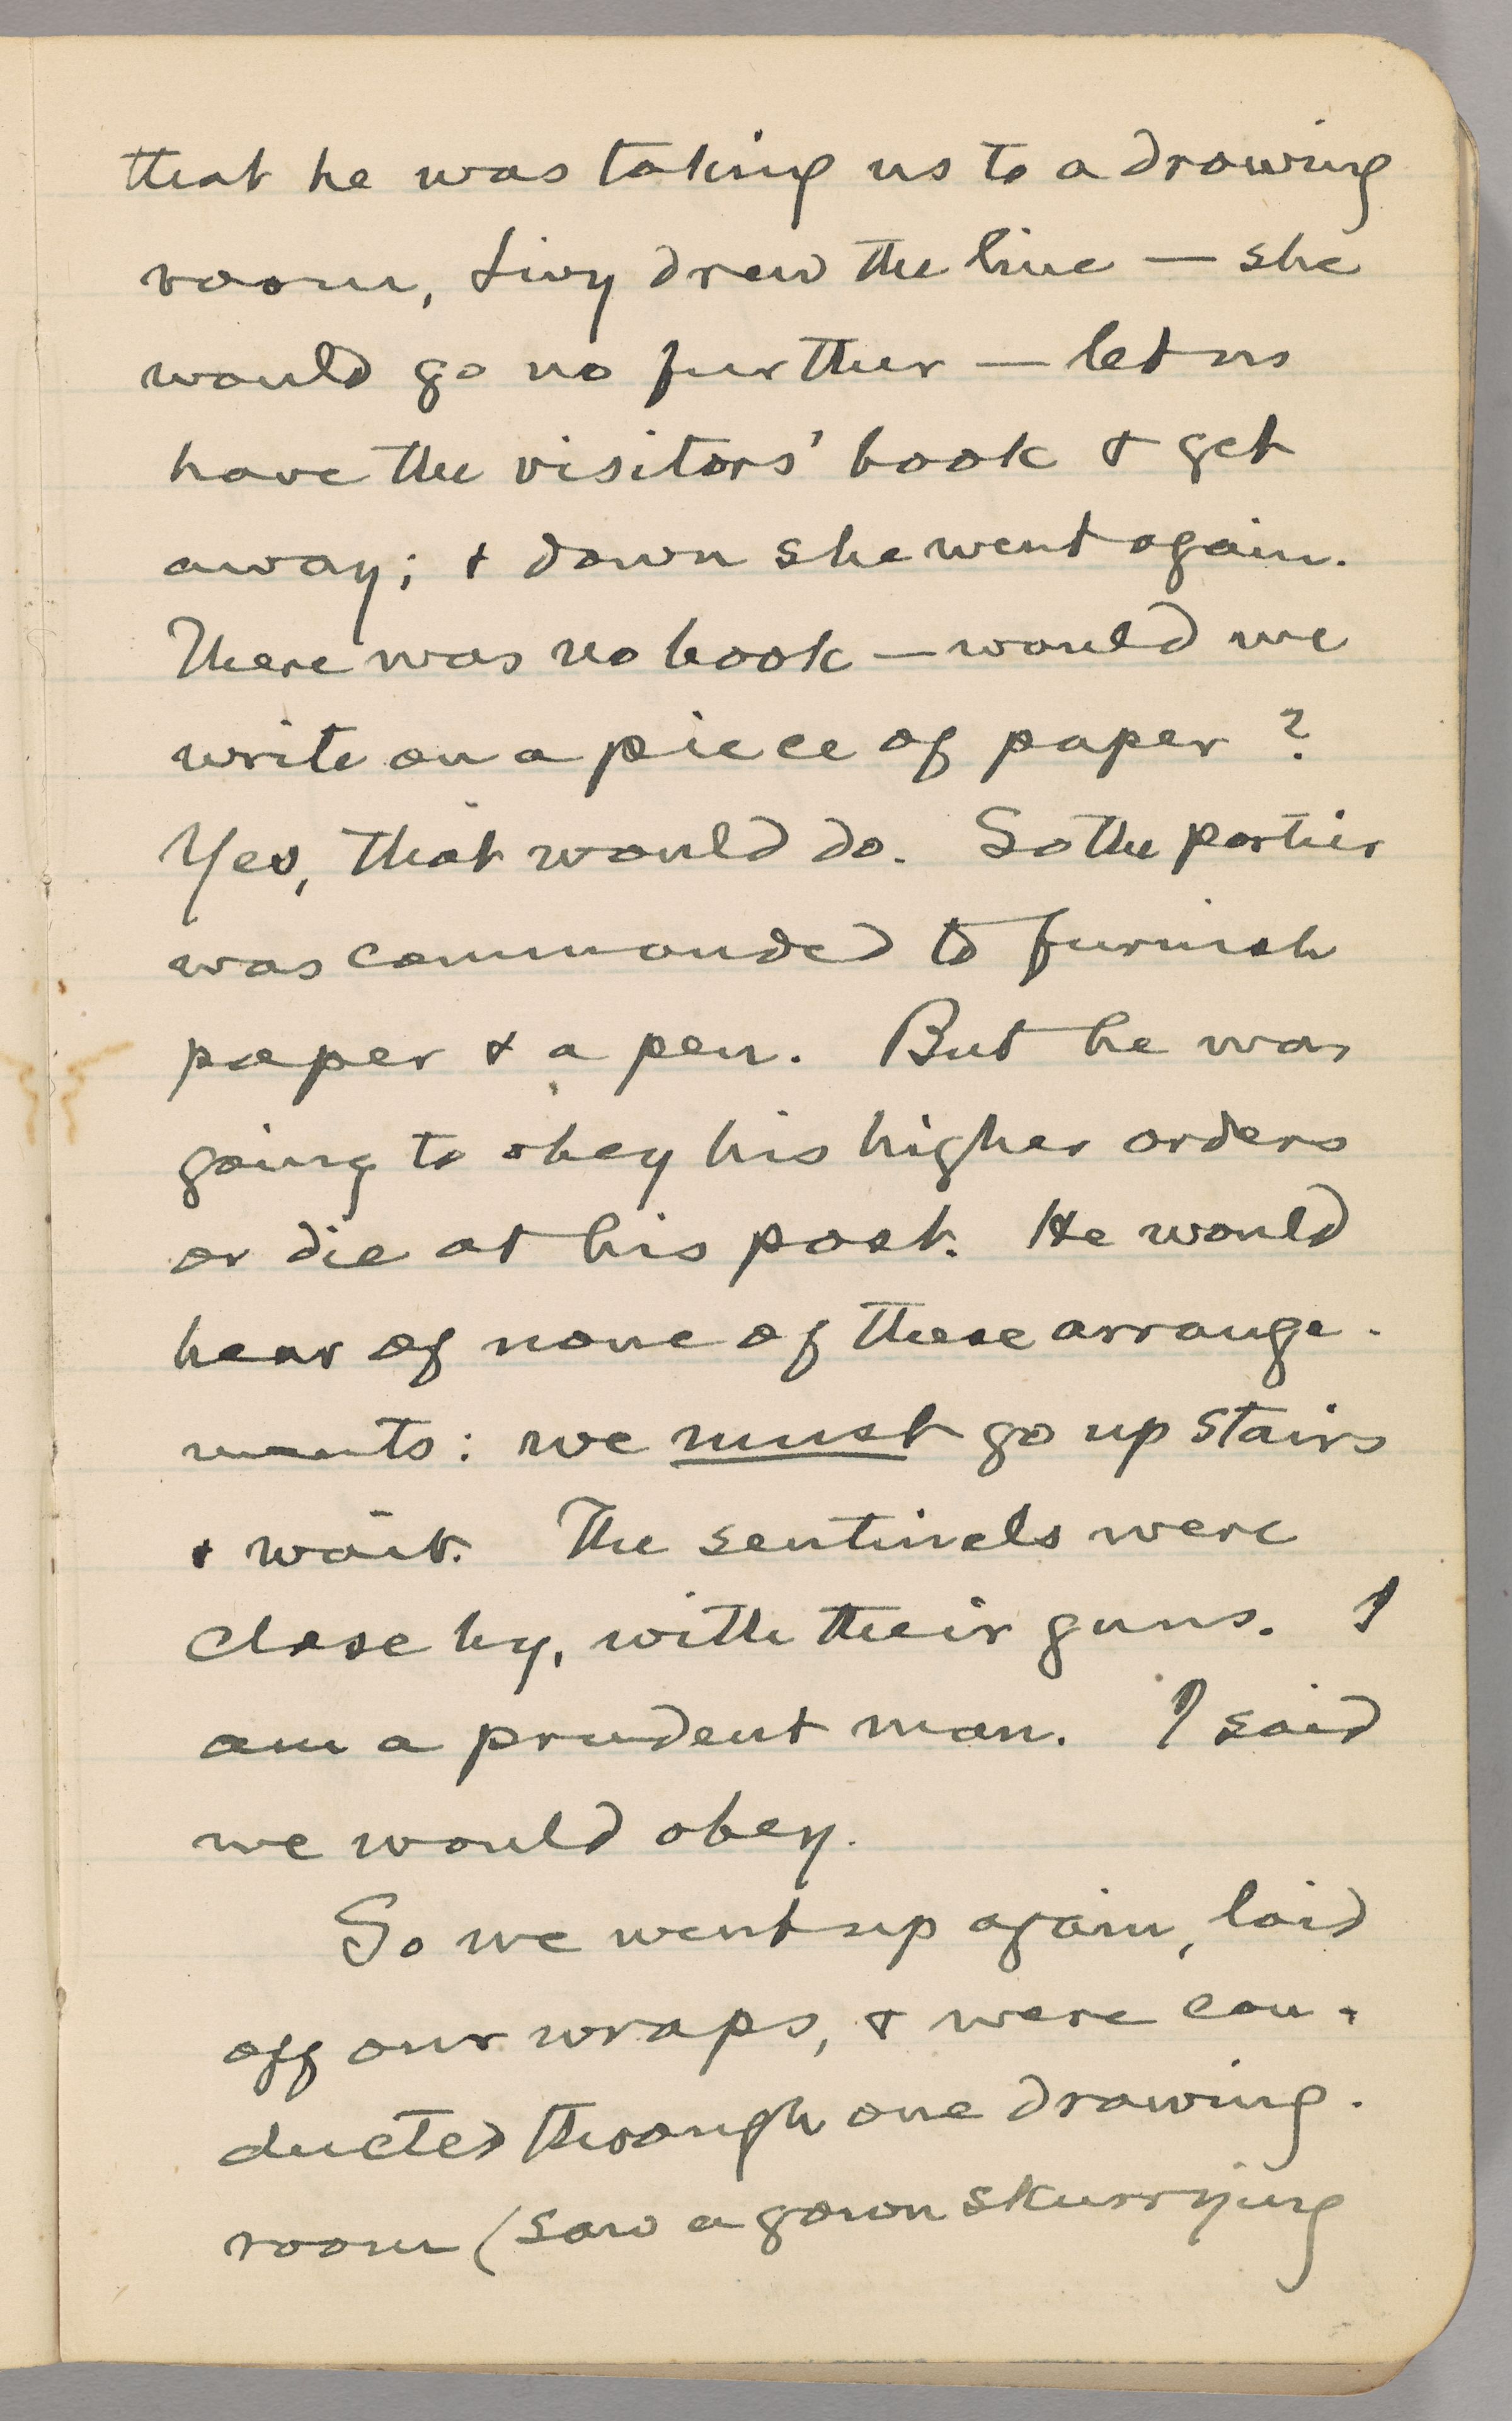 that he was taking us to a drawing
room, Livy drew the line — she
would go no further — let us
have the visitors' book & get
away; & down she went again.
There was no book — would we
write on a piece of paper?
Yes, that would do. So the portier
was commanded to furnish
paper & a pen. But he was
going to obey his higher orders
or die at his post. He would
hear of none of these arrange-
ments: we must go up stairs
& wait. The sentinels were
close by, with their guns. I
am a prudent man. I said
we would obey.
So we went up again, laid
off our wraps, & were con-
ducted through one drawing-
room (saw a gown skurrying